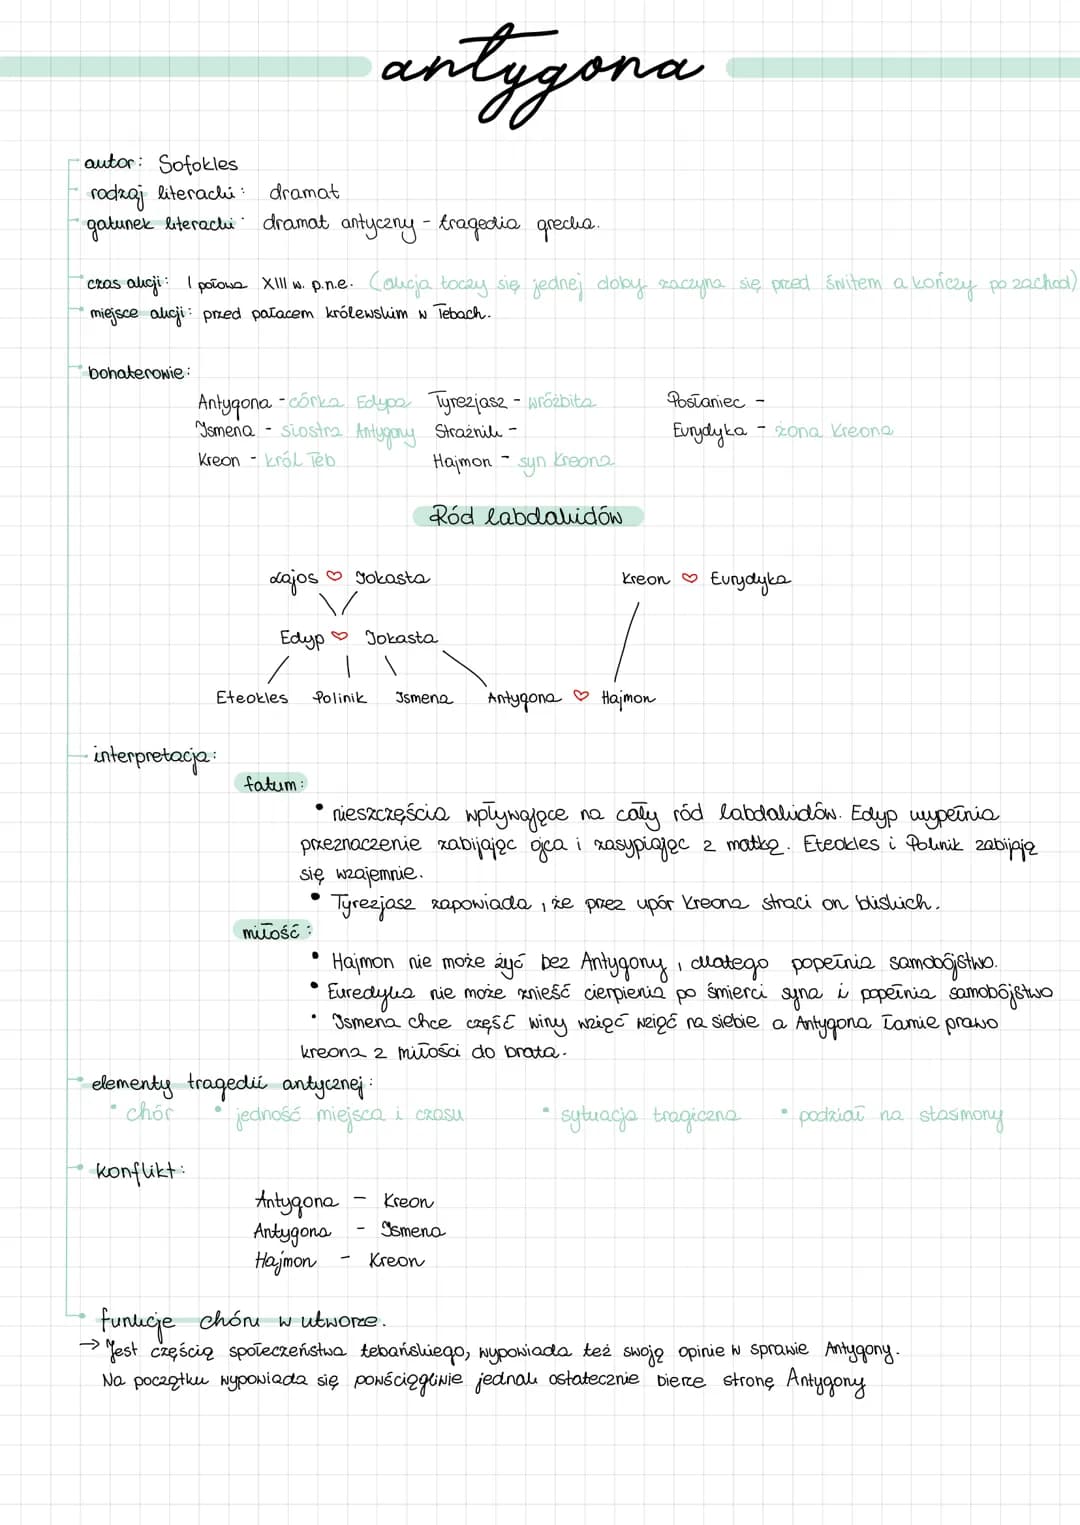 antygona
autor: Sofokles
rodzaj literacki: dramat
gatunek literacki: dramat antyczny - tragedia grecka.
czas akcji: I połowa XIII w. p.n.e. (akcja toczy się jednej doby zaczyna się przed świtem a kończy po zachod)
miejsce akcji: przed pałacem królewskim w Tebach.
bohaterowie:
Antygona - córka Edypa Tyrezjasz - wróżbita Posłaniec -
Ismena - siostra Antygony Strażnik - Eurydyka - żona Kreona
Kreon - król Teb Hajmon - syn Kreona
Ród labdakidów
Lajos ♡ Jokasta Kreon ♡ Eurydyka
Edyp ♡ Jokasta
Eteokles Polinik Ismena Antygona ♡ Hajmon
interpretacja:
fatum:
• nieszczęścia wpływające na cały ród labdakidów. Edyp wypełnia
przeznaczenie zabijając ojca i zasypiając z matką. Eteokles i Polinik zabijają
się wzajemnie.
• Tyrezjasz zapowiada, że przez upór Kreona straci on bliskich.
miłość:
• Hajmon nie może żyć bez Antygony, dlatego popełnia samobójstwo.
• Euredyka nie może znieść cierpienia po śmierci syna i popełnia samobójstwo
• Ismena chce część winy wziąć wziąć na siebie a Antygona łamie prawo
kreona z miłości do brata.
elementy tragedii antycznej:
• chór • jedność miejsca i czasu • sytuacja tragiczna • podział na stasimony
konflikt:
Antygona - Kreon
Antygona - Ismena
Hajmon - Kreon
funkcje chóru w utworze.
→ Jest częścią społeczeństwa tebańskiego, wypowiada też swoję opinie w sprawie Antygony.
Na początku wypowiada się powściągliwie jednak ostatecznie bierze stronę Antygony